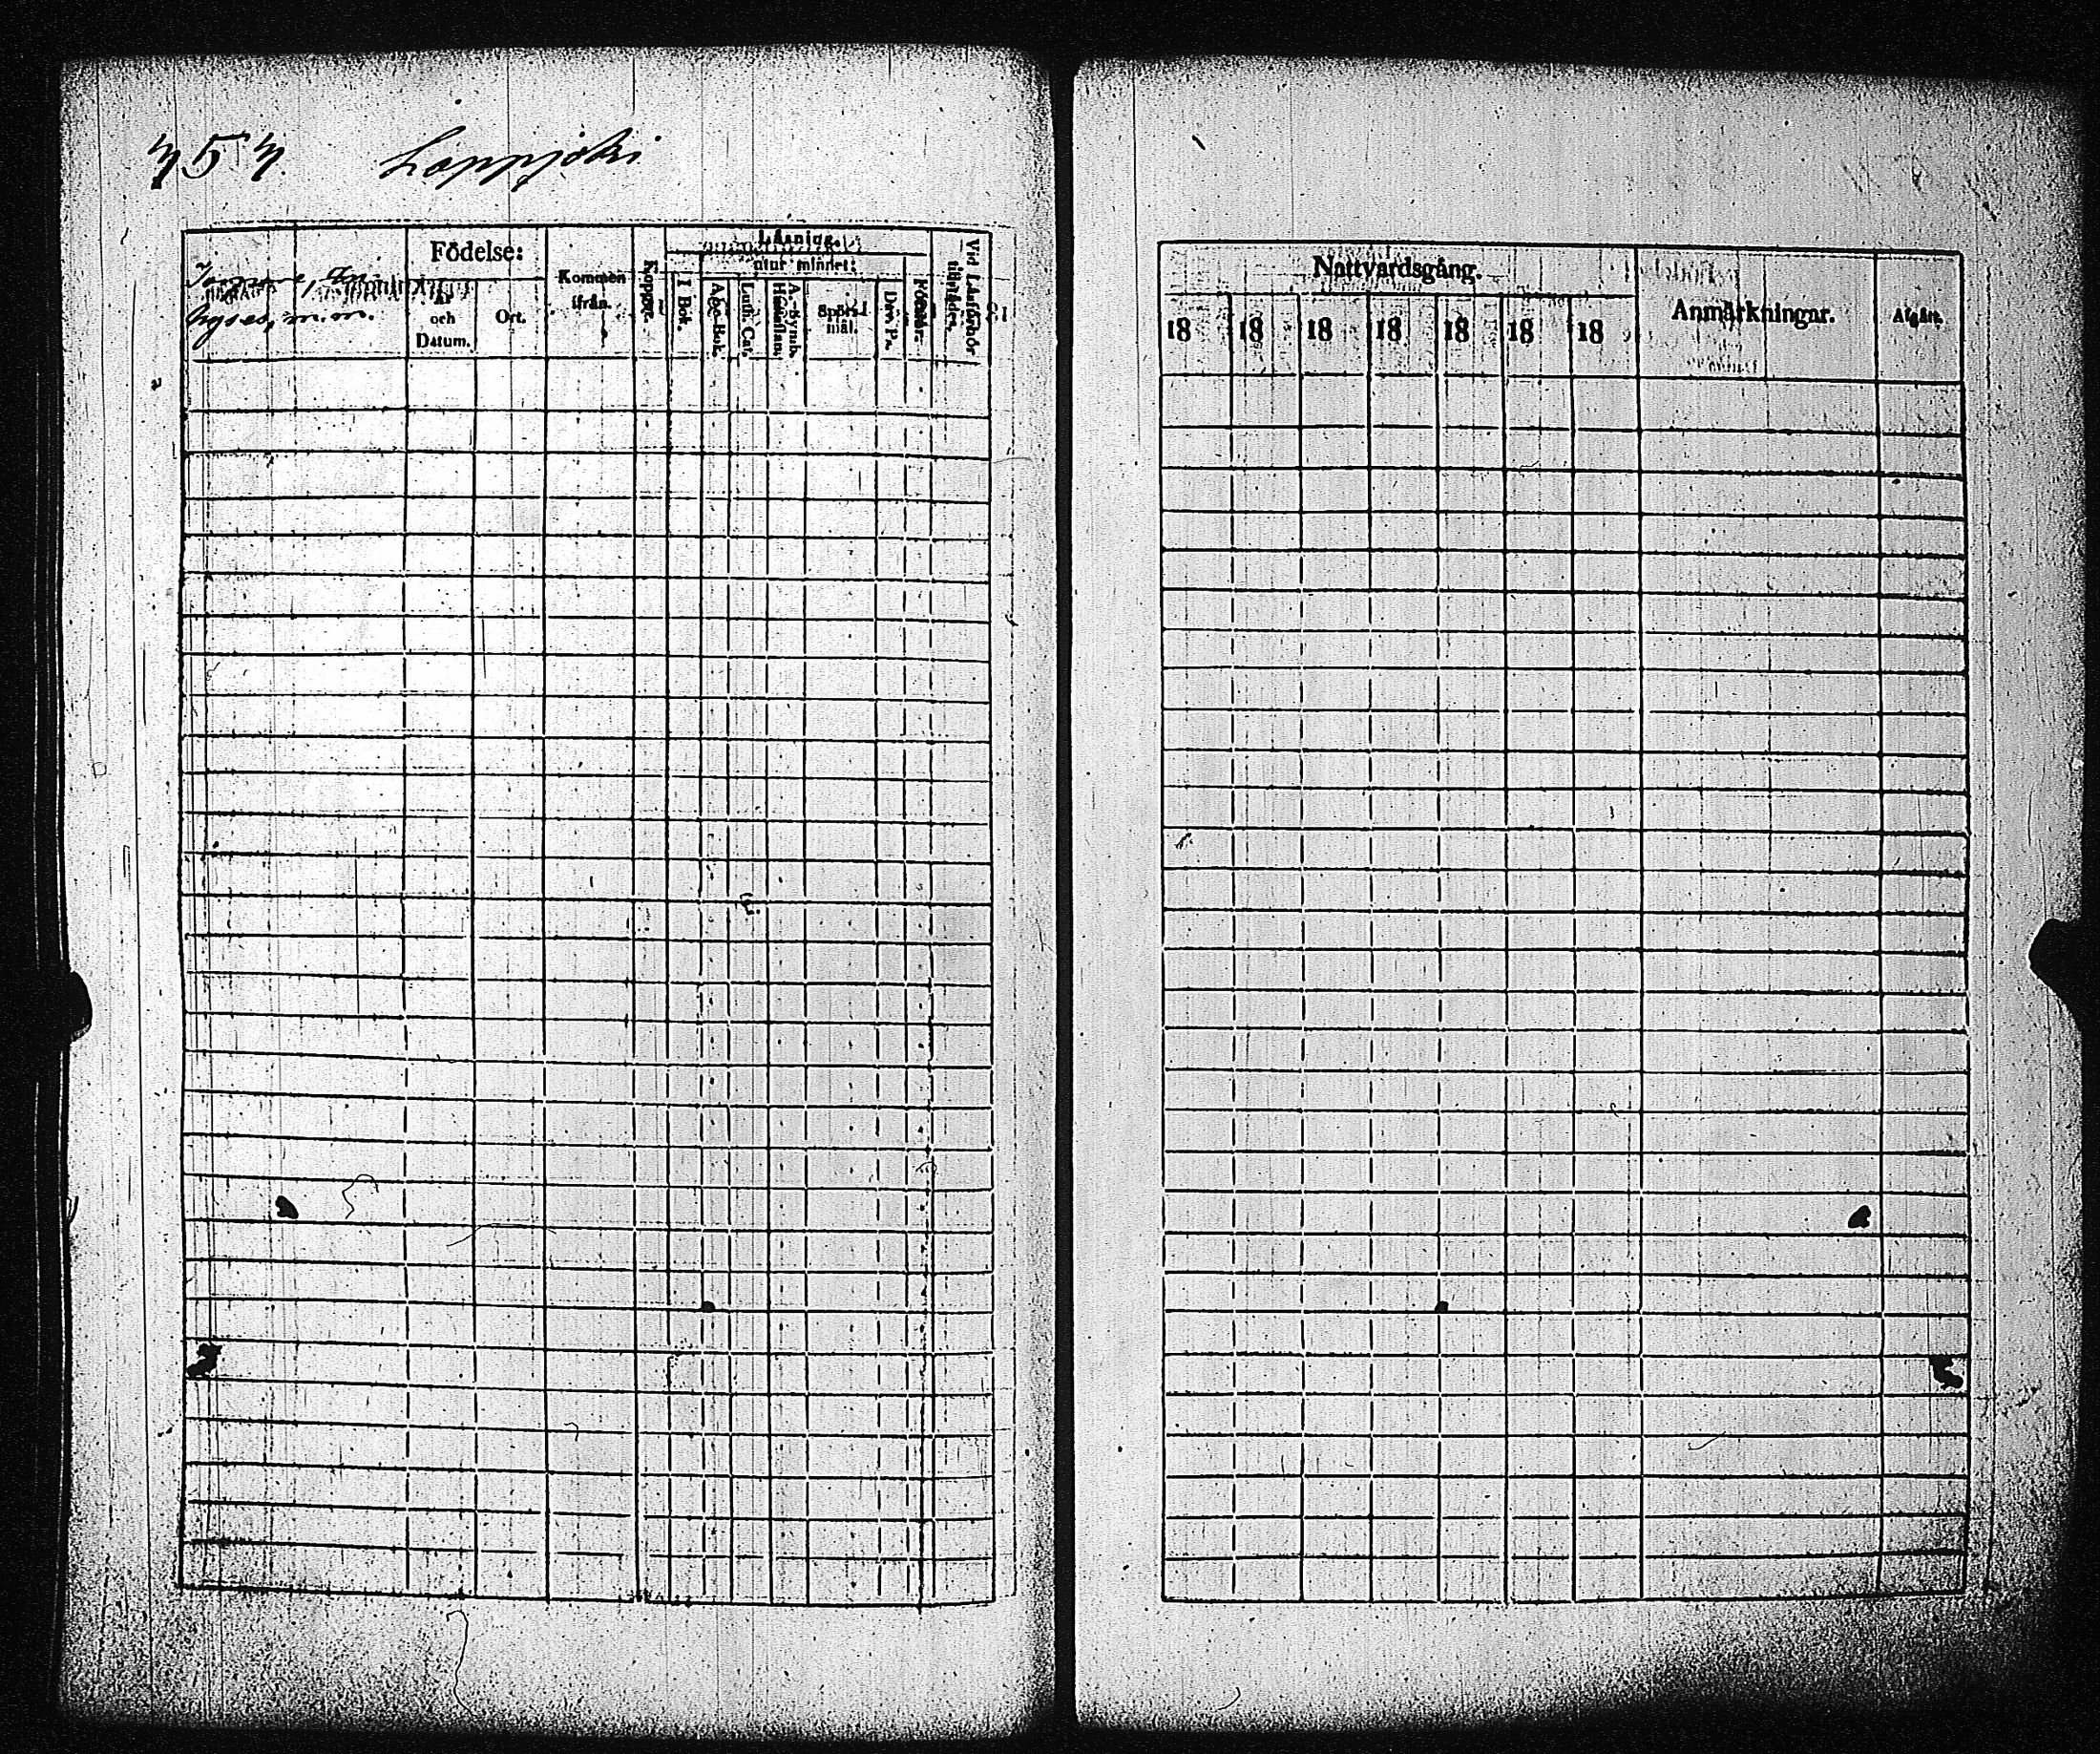 757. Lappjoki
Födelse:
År och Datum.
Ort.
Kommen ifrån.
Koppor.
Läsning.
utur minnet:
I Bok.
Abc-Bok.
Luth. Cat.
A.-Symb.
Hustaflan.
Spörsmål.
Dav. Ps.
Förstår.
Vid Läsförhör tillstädes.
Nattvardsgång.
18 18 18 18 18 18 18
Anmärkningar.
Afgått.